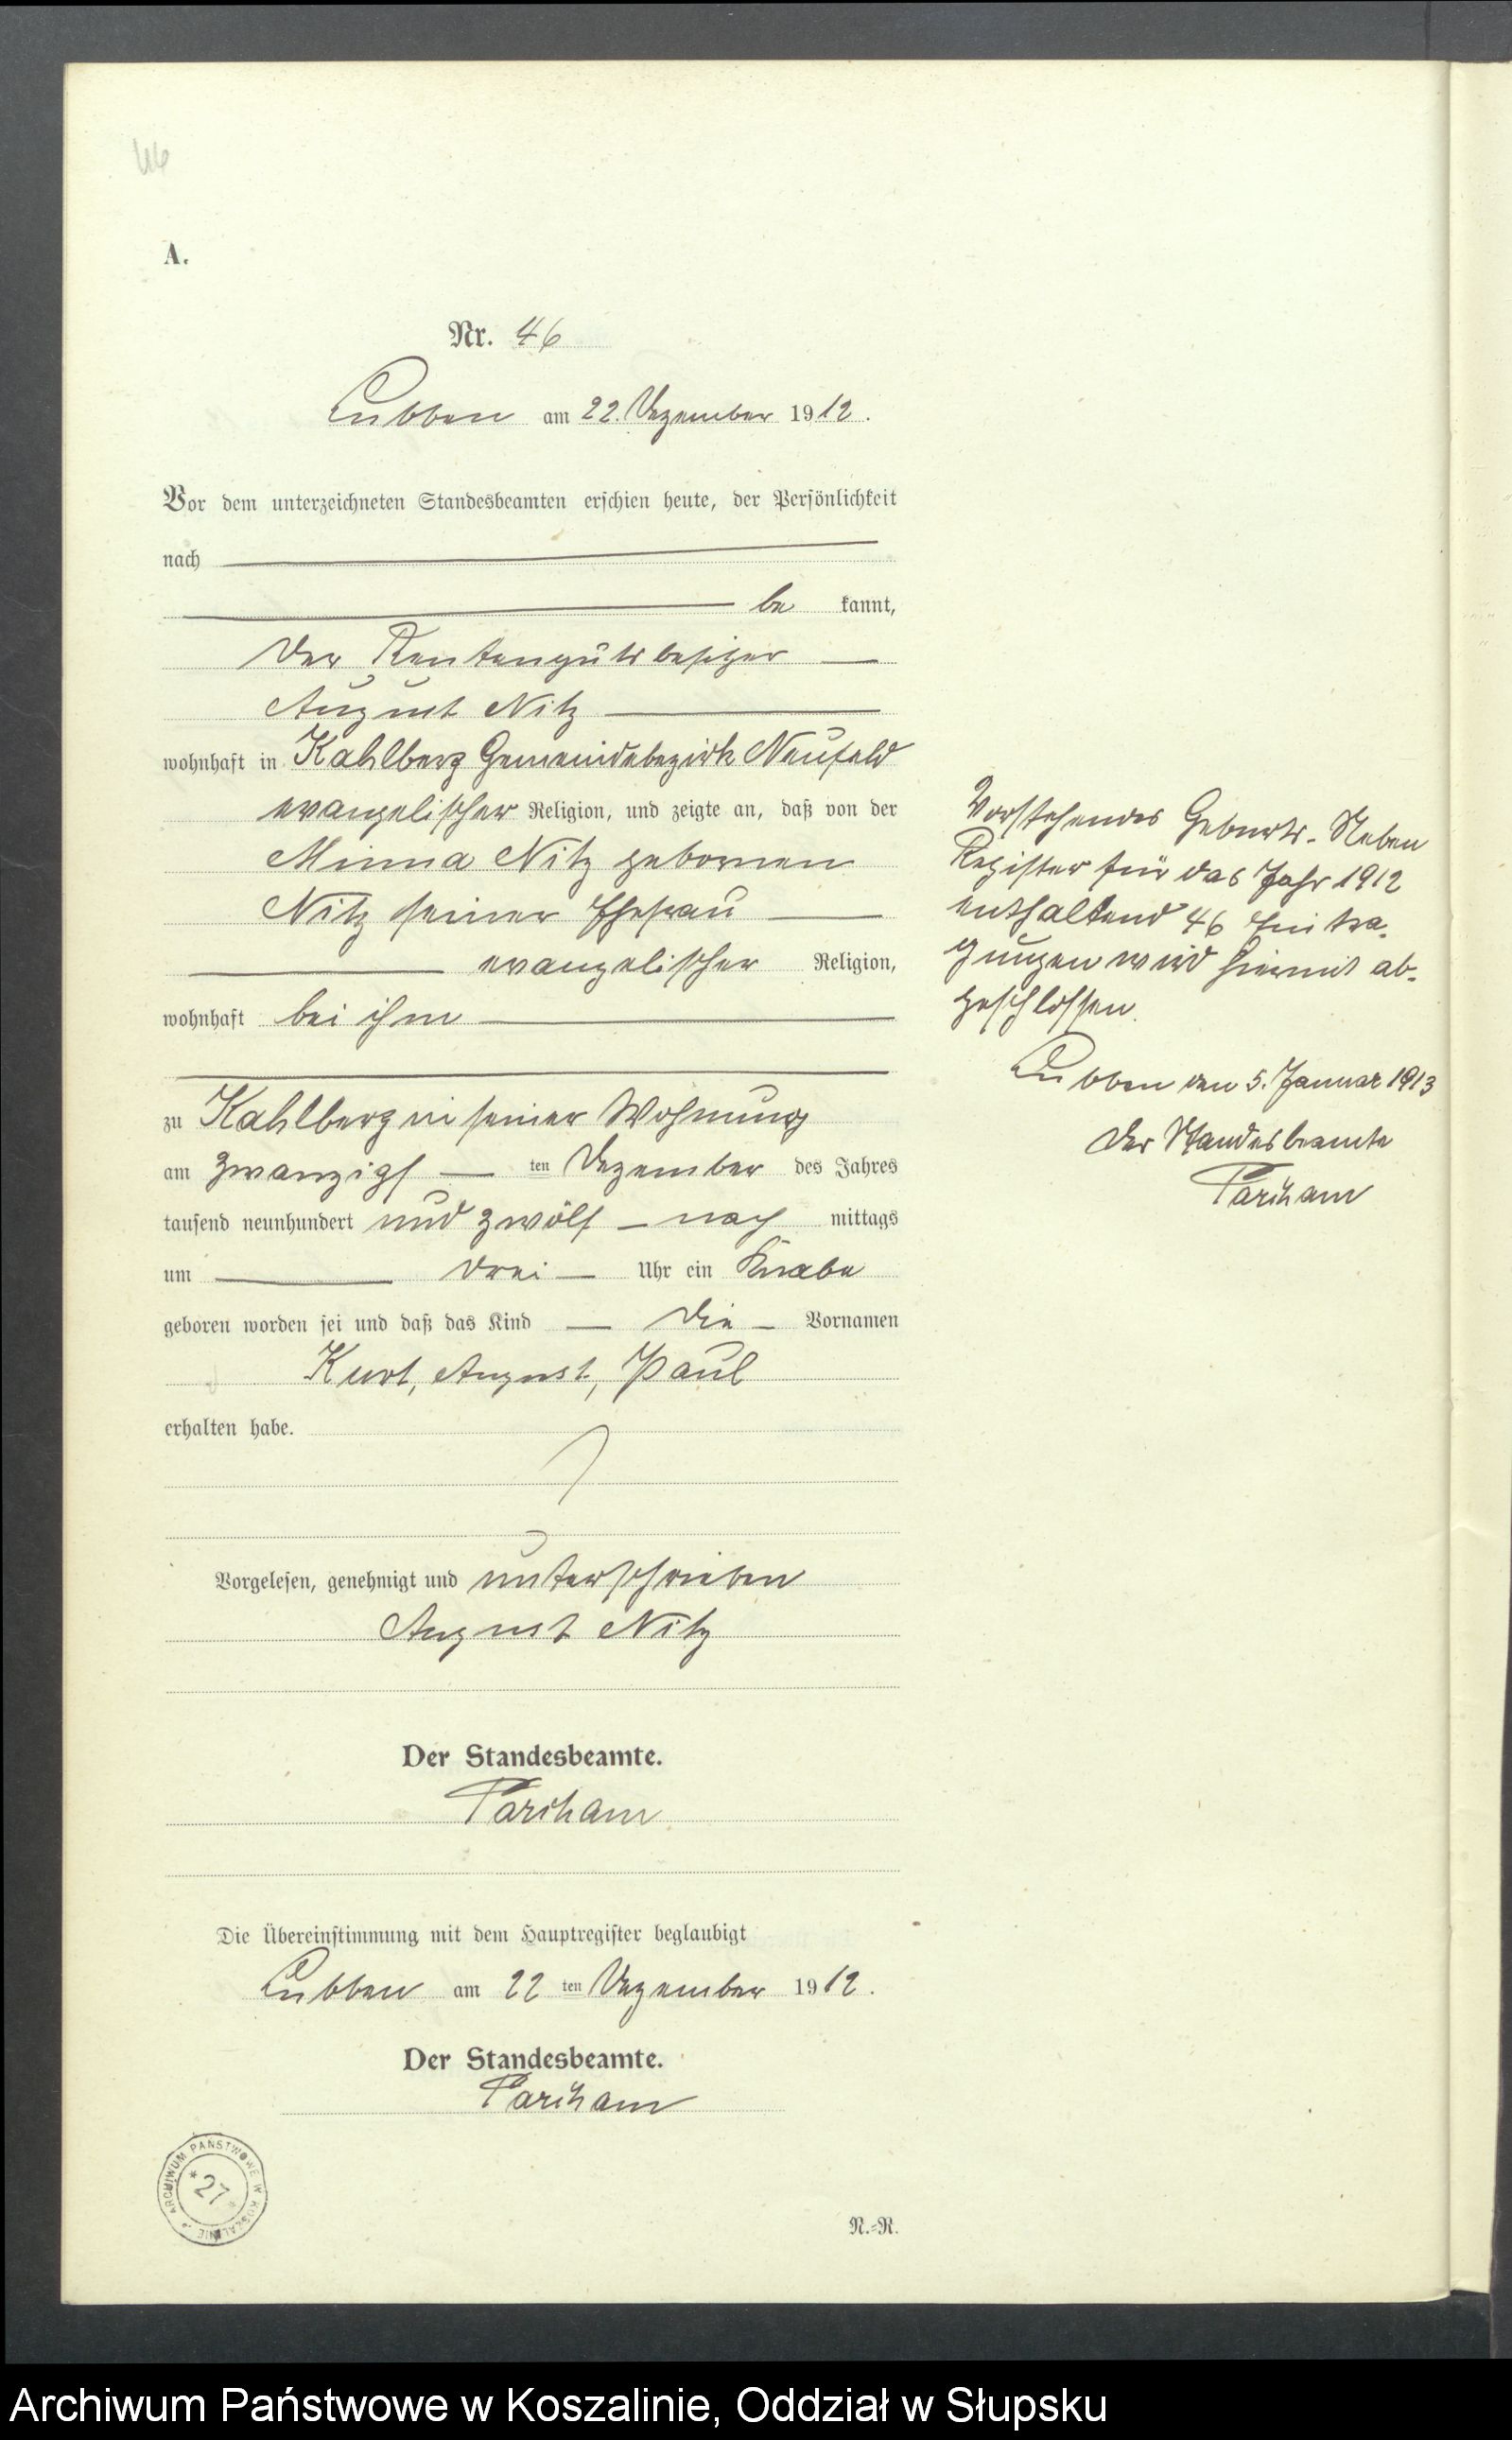 46
A.
Nr. 46
Lubben am 22. Dezember 1912.
Vor dem unterzeichneten Standesbeamten erschien heute, der Persönlichkeit
nach
be kannt,
der Rentengutsbesitzer
August Nitz
wohnhaft in Kahlberg Gemeindebezirk Neufeld
evangelischer Religion, und zeigte an, daß von der
Minna Nitz gebornen
Nitz seiner Ehefrau
evangelischer Religion,
wohnhaft bei ihm
zu Kahlberg in seiner Wohnung
am zwanzigs ten Dezember des Jahres
tausend neunhundert und zwölf nach mittags
um drei Uhr ein Knabe
geboren worden sei und daß das Kind die Vornamen
Kurt, August, Paul
erhalten habe.
Vorgelesen, genehmigt und unterschrieben
August Nitz
Der Standesbeamte.
Die Übereinstimmung mit dem Hauptregister beglaubigt
Lubben am 22 ten Dezember 1912.
Der Standesbeamte.
N.-R.
Vorstehendes Geburts-Neben
Register für das Jahr 1912
enthaltend 46 Eintra-
gungen wird hiermit ab-
geschlossen.
Lubben den 5. Januar 1913
Der Standesbeamte
ARCHIWUM PAŃSTWOWE W KOSZALINIE
*27*
Archiwum Państwowe w Koszalinie, Oddział w Słupsku